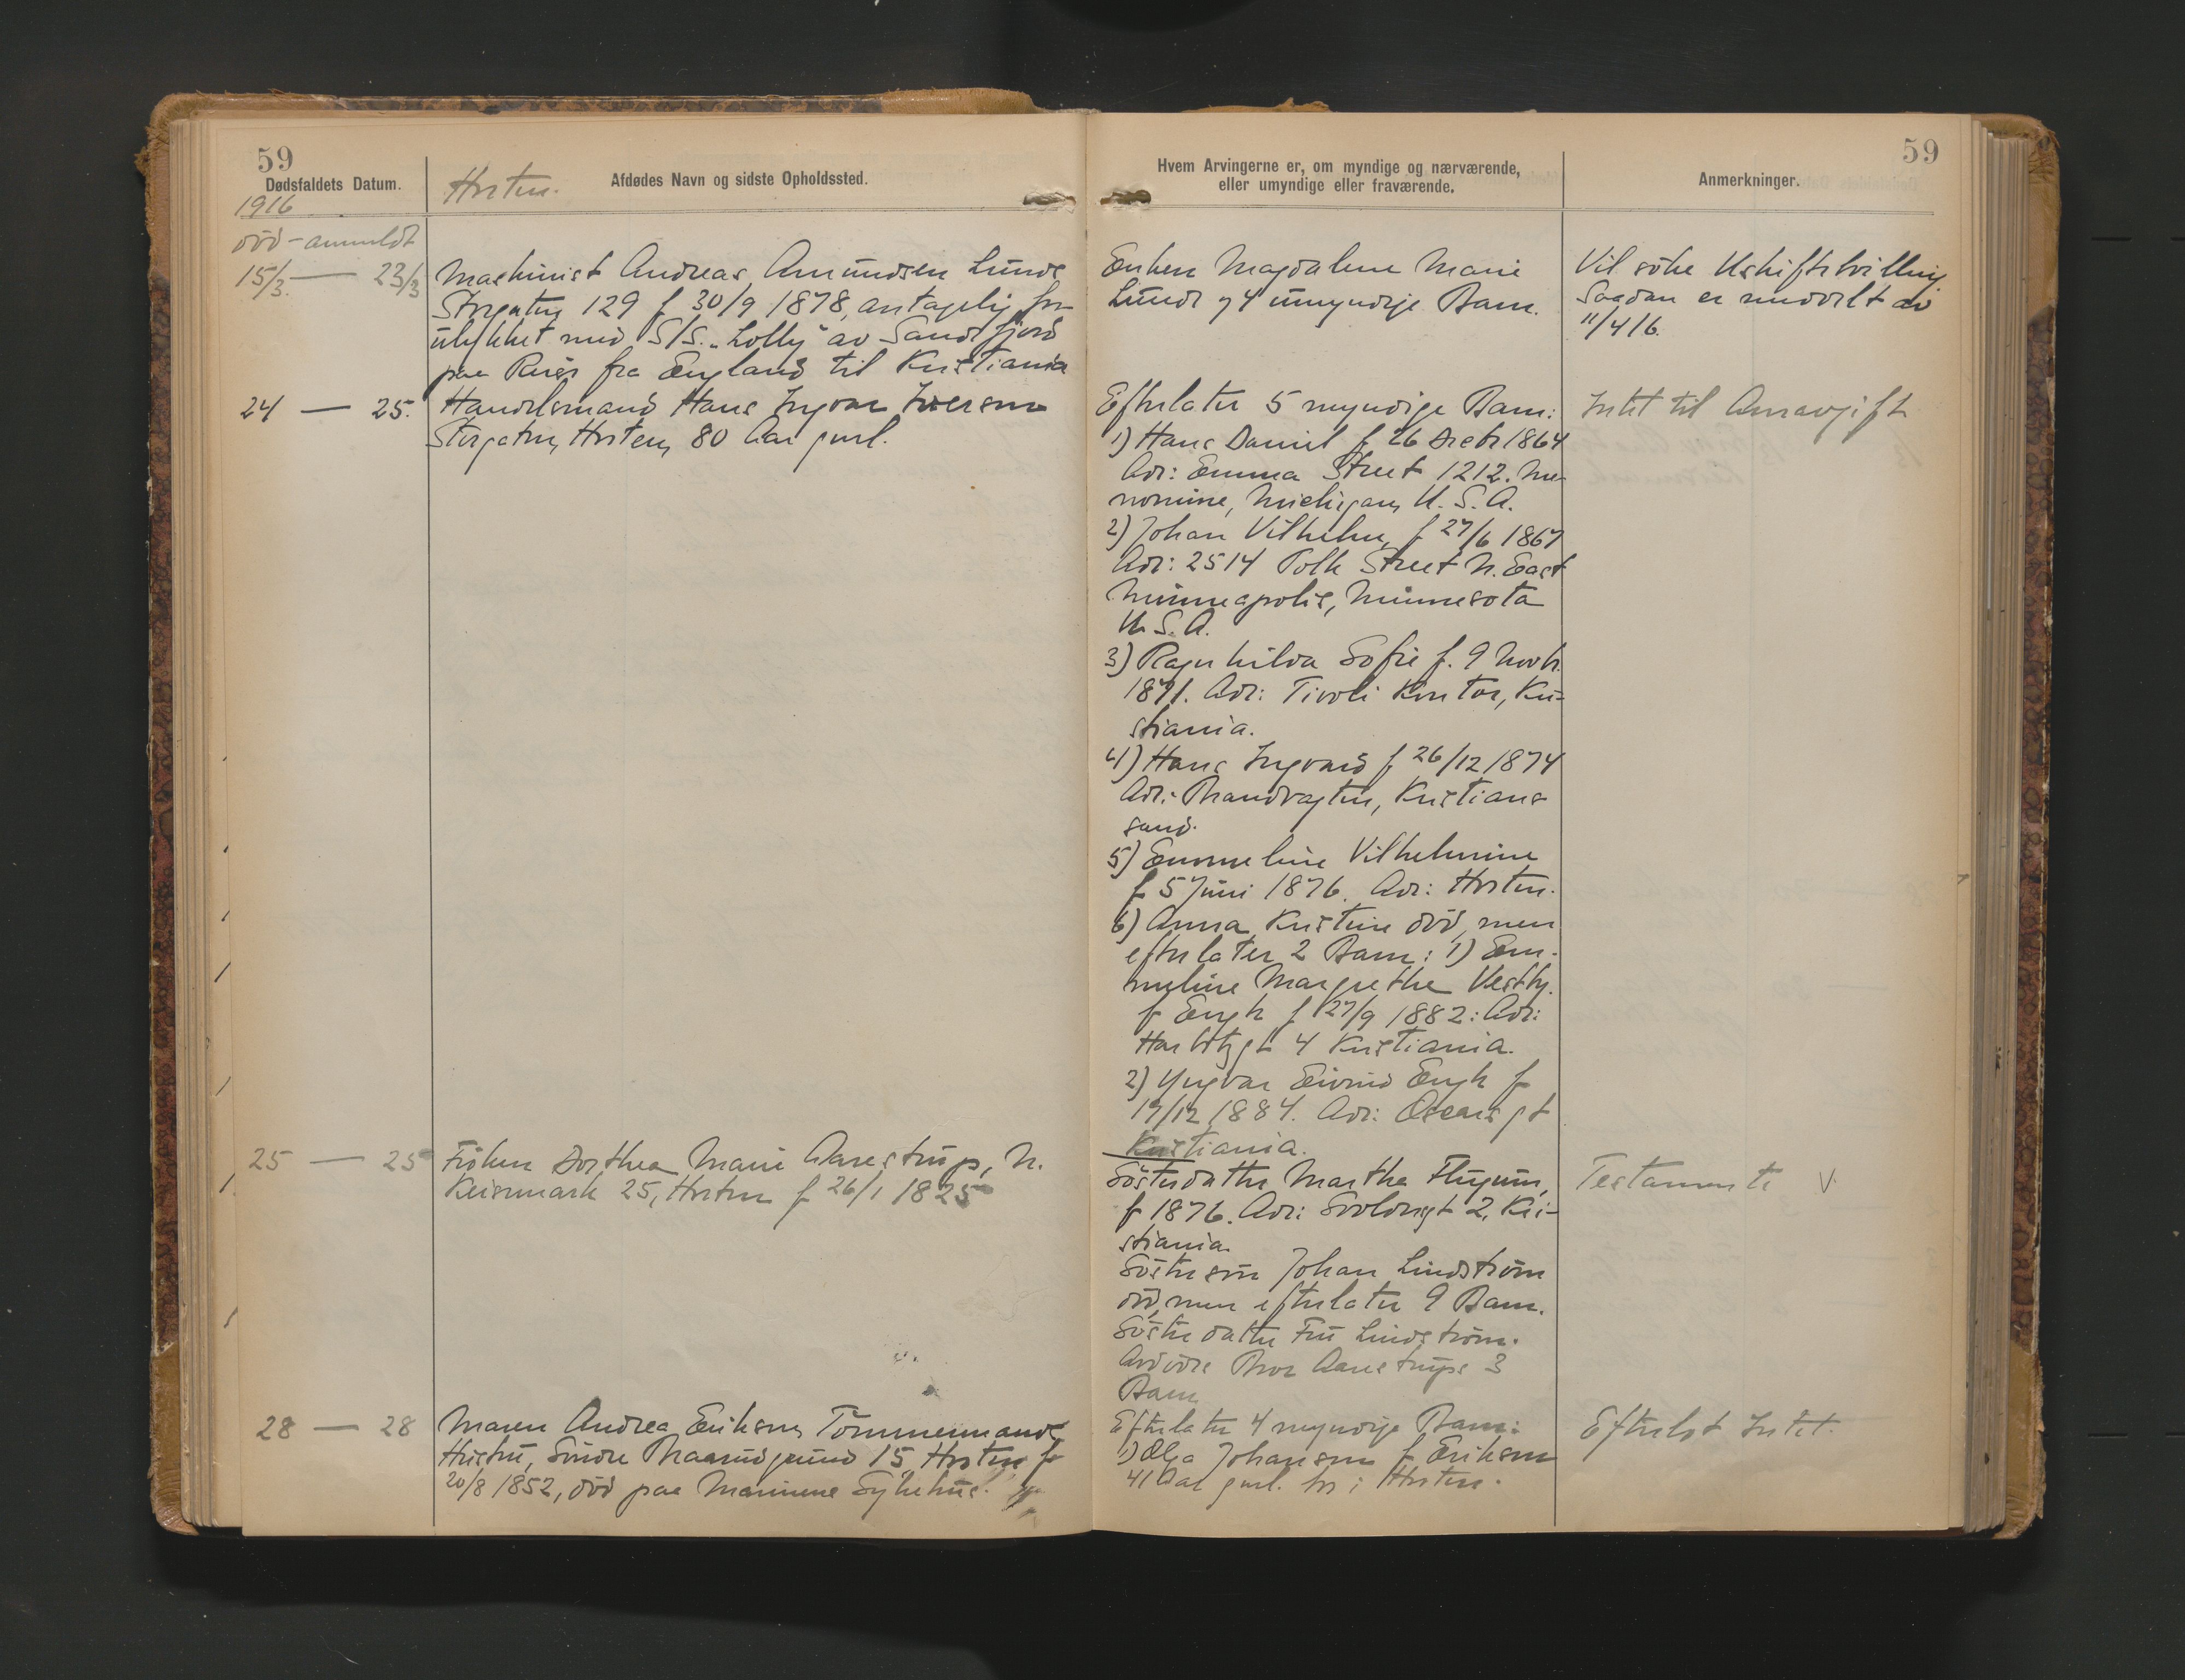 59
Dødsfaldets Datum.
1916
Horten.
Afdødes Navn og sidste Opholdssted.
Hvem Arvingerne er, om myndige og nærværende,
eller umyndige eller fraværende.
59
Anmerkninger.
död - anmeldt
15/3. — 23/3
Maskinist Andreas Amundsen Lunde
Storgaten 129 f 30/9 1878, antagelig for
ulykket med S/S. "Lolly" av Sandefjord
paa Reise fra England til Kristiania
Enken Magdalene Marie
Lunde og 4 umyndige Barn.
Vil söke Uskiftebevilling
Saadan er meddelt av
11/4 16.
24 — 25.
Handelsmand Hans Ingvar Iversen
Storgaten, Horten, 80 Aar gml.
Efterlater 5 myndige Barn:
1) Hans Daniel f 26 Decbr 1864
Adr: Emma Street 1212. Me-
nomine, Michigan, U. S. A.
2) Johan Vilhelm, f 27/6 1867
Adr: 2514 Polk Street N. East
Minneapolis, Minnesota
U. S. A.
3) Ragnhilda Sofie f. 9 Novbr.
1871. Adr: Tivoli Kontor, Kri-
stiania.
4) Hans Ingvard f 26/12 1874
Adr: Brandvagten, Kristians
sand.
5) Emmeline Vilhelmine
f 5 Juni 1876. Adr: Horten.
6) Anna Kristine död, men
efterlater 2 Barn: 1) Em-
meline Margrethe Vestby.
f Engh f 27/9 1882: Adr:
4 Kristiania.
2) Yngvar Eivind Engh f
17/12 1884. Adr: Oscarsgt
Kristiania.
Intet til Arveavgift
25 — 25
Fröken Dorthea Marie Aarestrup, N.
Keisemark 25, Horten f 26/1 1825
Sösterdatter Martha Flugum,
f 1876. Adr: Svoldergt 2, Kri-
stiania.
Söstersön Johan Lindström
död, men efterlater 9 Barn.
Sösterdatter Fru Lindström.
Avdöde Bror Aarestrups 3
Barn
Testamente V.
28 — 28
Maren Andrea Eriksen, Tömmermands
Hustru, Söndre Braarudgrund 15, Horten f
20/8 1852, död paa Marinens Sykehus.
Efterlater 4 myndige Barn:
1) Olga Johansen f Eriksen
41 Aar gml. bor i Horten.
Efterlot Intet.